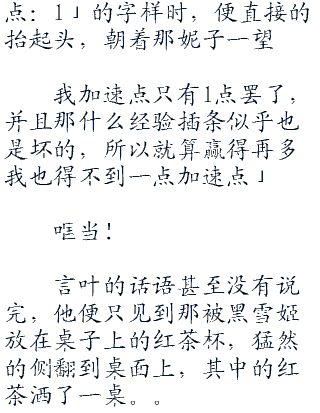 点：1」的字样时，便直接的
抬起头，朝着那妮子一望
我加速点只有1点罢了，
并且那什么经验插条似乎也
是坏的，所以就算赢得再多
我也得不到一点加速点」
哐当！
言叶的话语甚至没有说
完，他便只见到那被黑雪姬
放在桌子上的红茶杯，猛然
的侧翻到桌面上，其中的红
茶洒了一桌。。